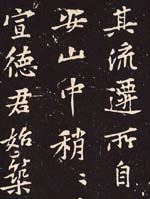 其流遷所自
安山中稍〻
宣德君始築